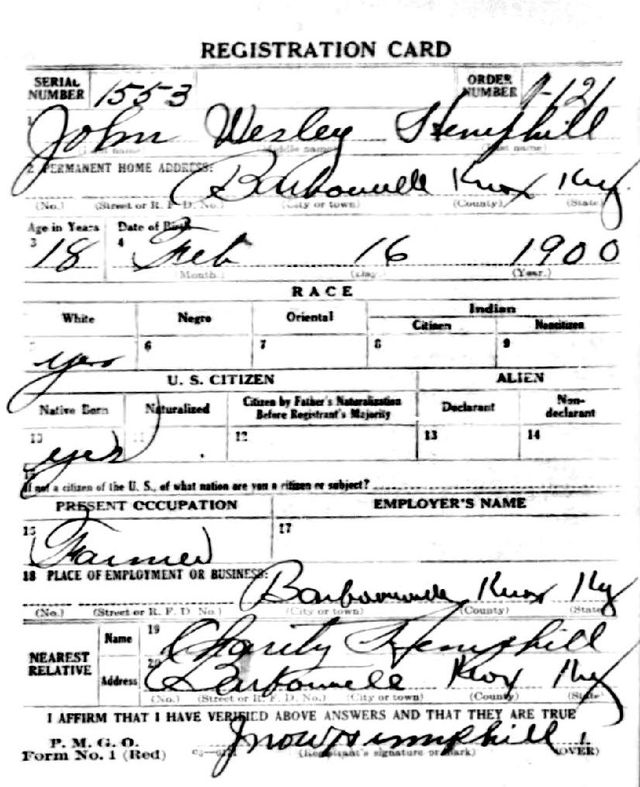 REGISTRATION CARD
SERIAL NUMBER 1553 ORDER NUMBER A-121
1 John Wesley Hemphill
(First name) (Middle name) (Last name)
2 PERMANENT HOME ADDRESS:
Barbourville Knox Ky
(No.) (Street or R. F. D. No.) (City or town) (County) (State)
Age in Years Date of Birth
3 18 4 Feb 16 1900
(Month.) (Day.) (Year.)
RACE
White Negro Oriental Indian
Citizen Noncitizen
yes 6 7 8 9
U. S. CITIZEN ALIEN
Native Born Naturalized Citizen by Father's Naturalization Before Registrant's Majority Declarant Non-declarant
10 yes 11 12 13 14
15 If not a citizen of the U. S., of what nation are you a citizen or subject?
PRESENT OCCUPATION EMPLOYER'S NAME
16 Farmer 17
18 PLACE OF EMPLOYMENT OR BUSINESS:
Barbourville Knox Ky
(No.) (Street or R. F. D. No.) (City or town) (County) (State)
NEAREST RELATIVE Name 19 Charity Hemphill
Address 20 Barbourville Knox Ky
(No.) (Street or R. F. D. No.) (City or town) (County) (State)
I AFFIRM THAT I HAVE VERIFIED ABOVE ANSWERS AND THAT THEY ARE TRUE
P. M. G. O.
Form No. 1 (Red) Jno W Hemphill
(Registrant's signature or mark) (OVER)